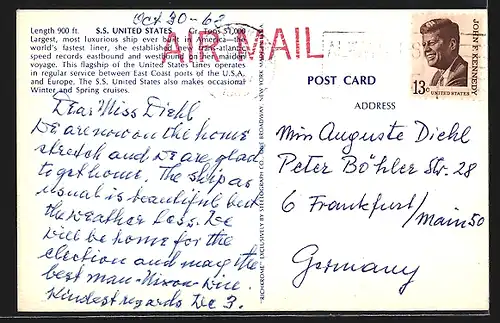 Oct 30-68
Length 900 ft. S.S. UNITED STATES Gr. Tons 51,000
Largest, most luxurious ship ever built in America—the
world's fastest liner, she established new trans-atlantic
speed records eastbound and westbound on her maiden
voyage. This flagship of the United States Lines operates
in regular service between East Coast ports of the U.S.A.
and Europe. The S.S. United States also makes occasional
Winter and Spring cruises.
AIR MAIL
Dear Miss Diehl
We are now on the home
stretch and we are glad
to get home. The ship as
usual is beautiful but
the weather less. We
will be home for the
election and may the
best man-Nixon-win.
Kindest regards
POST CARD
ADDRESS
Miss Auguste Diehl
Peter Böhler Str. 28
6 Frankfurt/Main 50
Germany
JOHN F. KENNEDY
13c
UNITED STATES